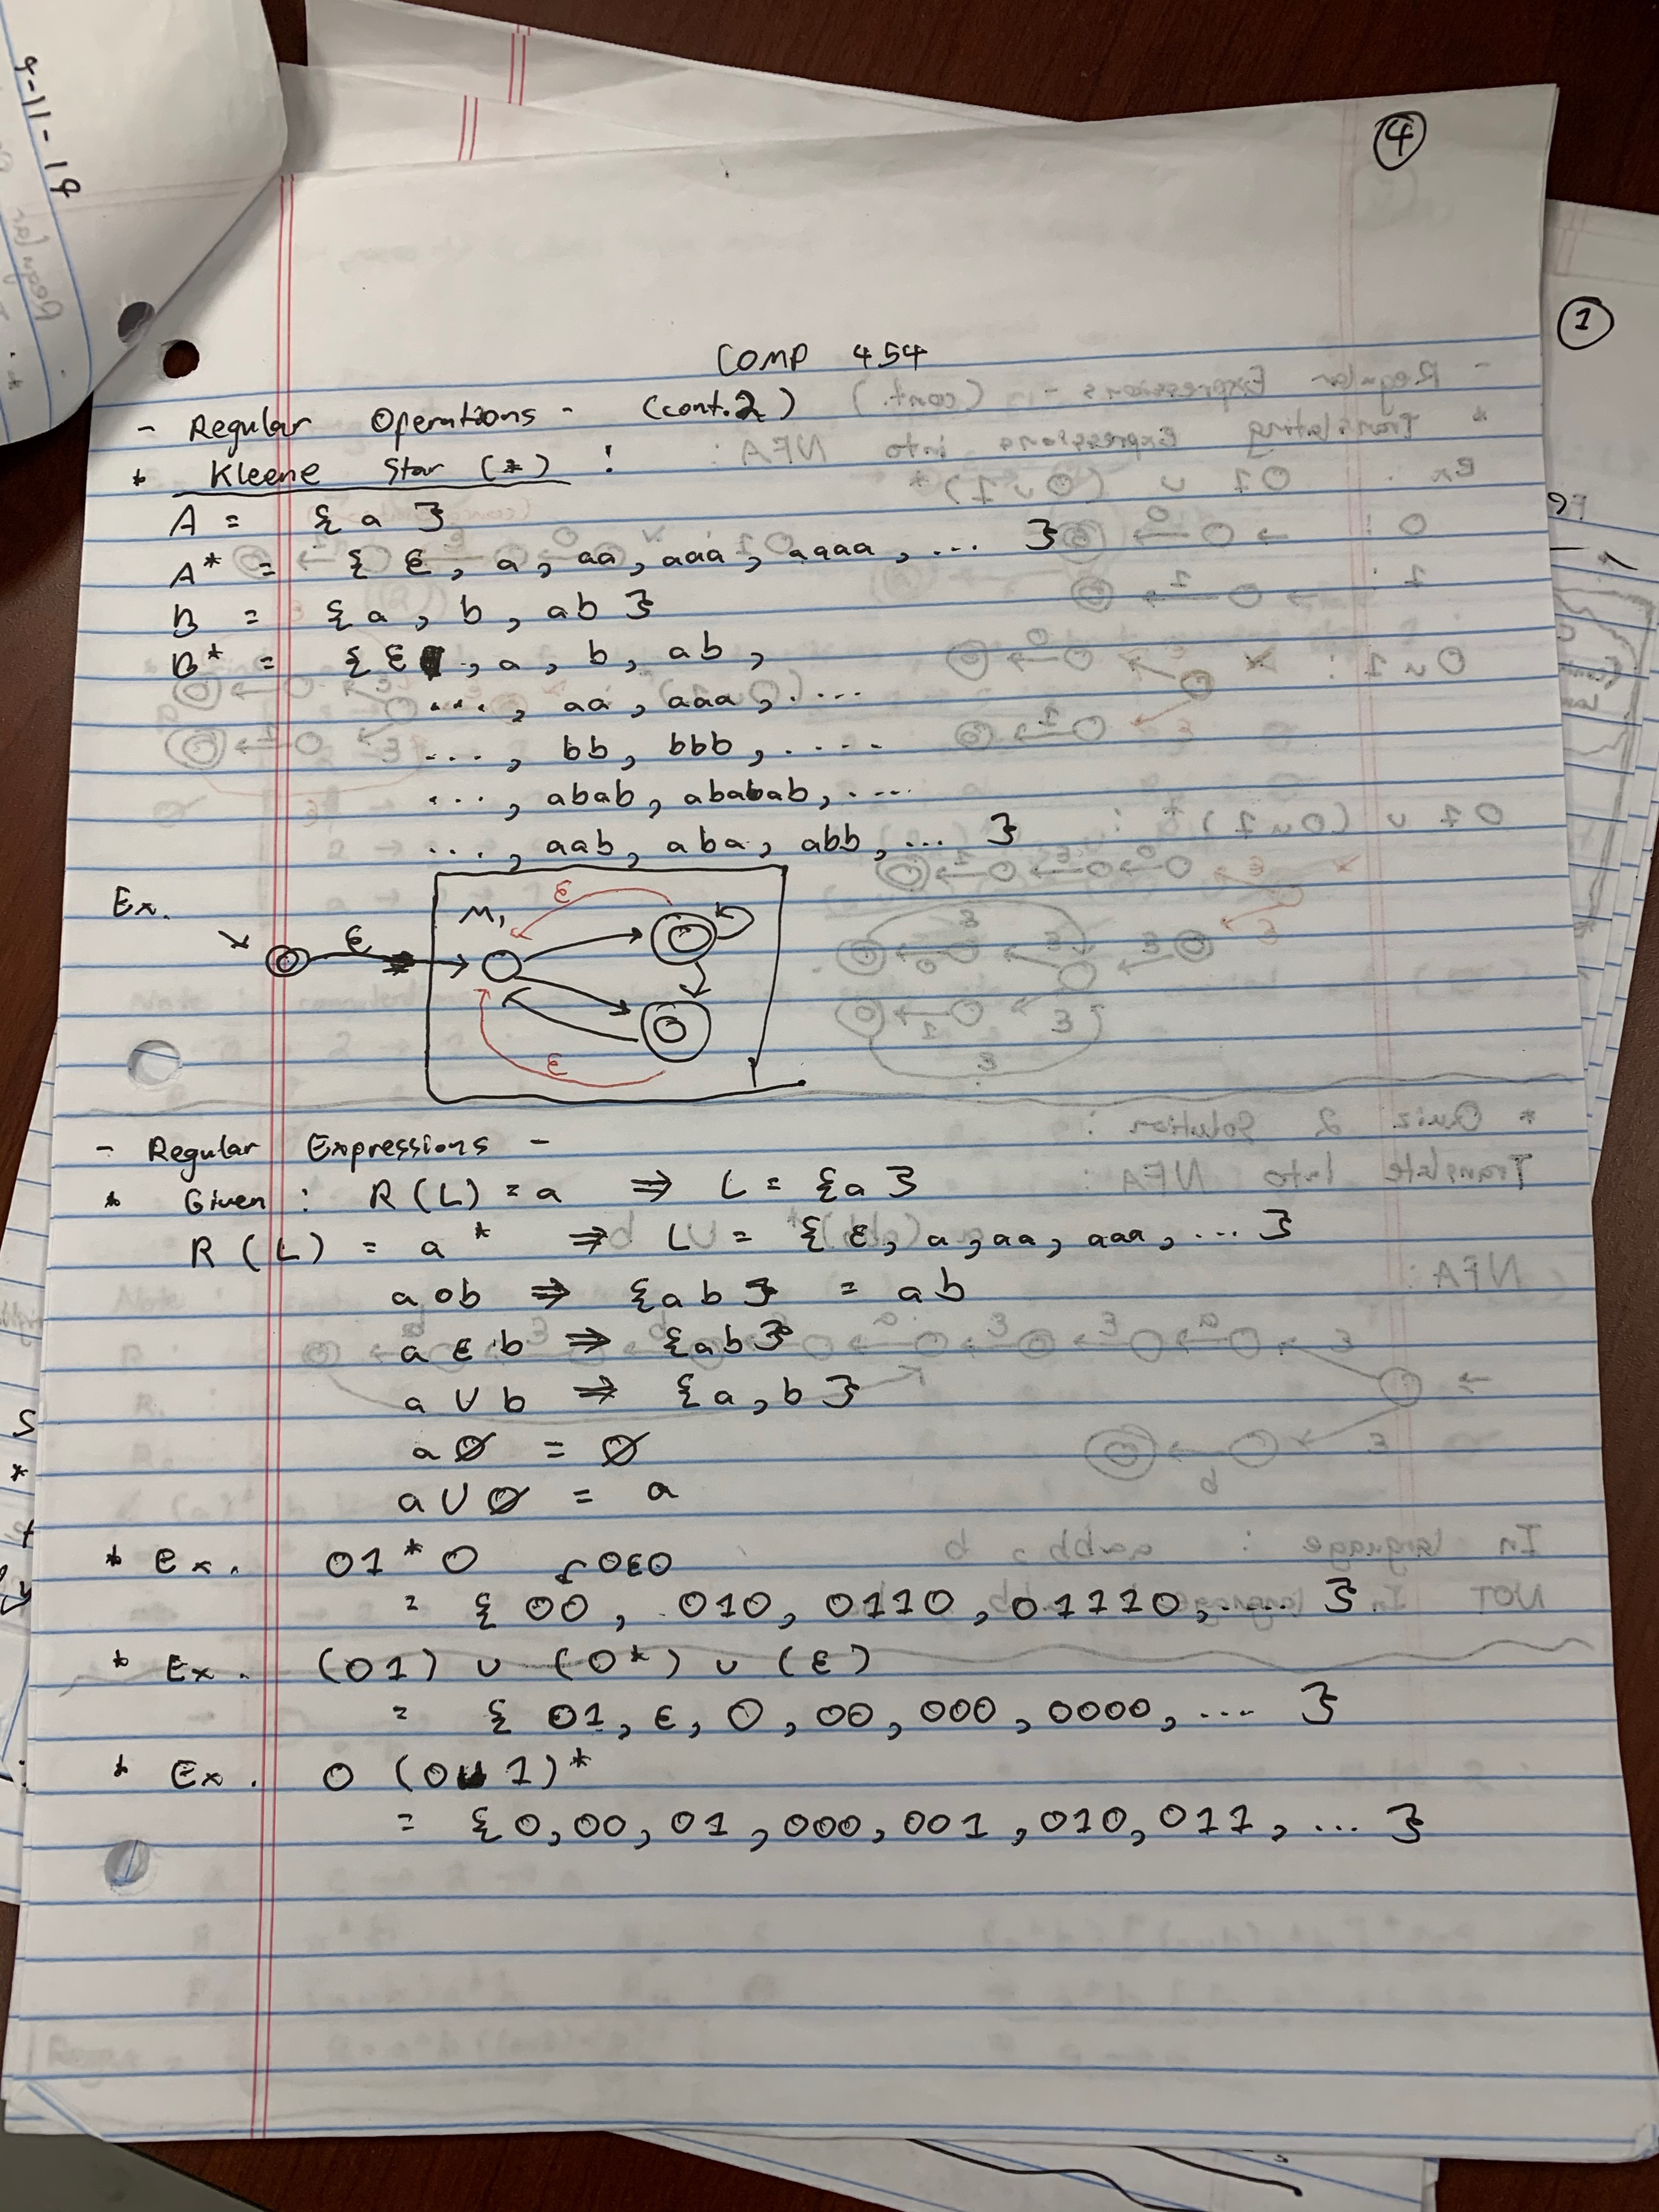 4-11-19
④
①
COMP 454
- Regular Operations - (cont.2)
* Kleene Star (*) :
A = { a }
A* = { ε, a, aa, aaa, aaaa, ... }
B = { a, b, ab }
B* = { ε , a, b, ab,
..., aa, aaa, ....
..., bb, bbb, ....
..., abab, ababab, ....
..., aab, aba, abb, ... }
Ex.
ε
M₁
ε
ε
- Regular Expressions -
* Given : R(L) = a ⇒ L = {a}
R(L) = a* ⇒ L = { ε, a, aa, aaa, ... }
a∘b ⇒ {ab} = ab
a ε b ⇒ {ab}
a ∪ b ⇒ {a, b}
a∅ = ∅
a∪∅ = a
* Ex. 01*0 0ε0
= { 00, 010, 0110, 01110, .... }
* Ex. (01) ∪ (0*) ∪ (ε)
= { 01, ε, 0, 00, 000, 0000, ... }
* Ex. 0 (0∪1)*
= {0, 00, 01, 000, 001, 010, 011, ... }